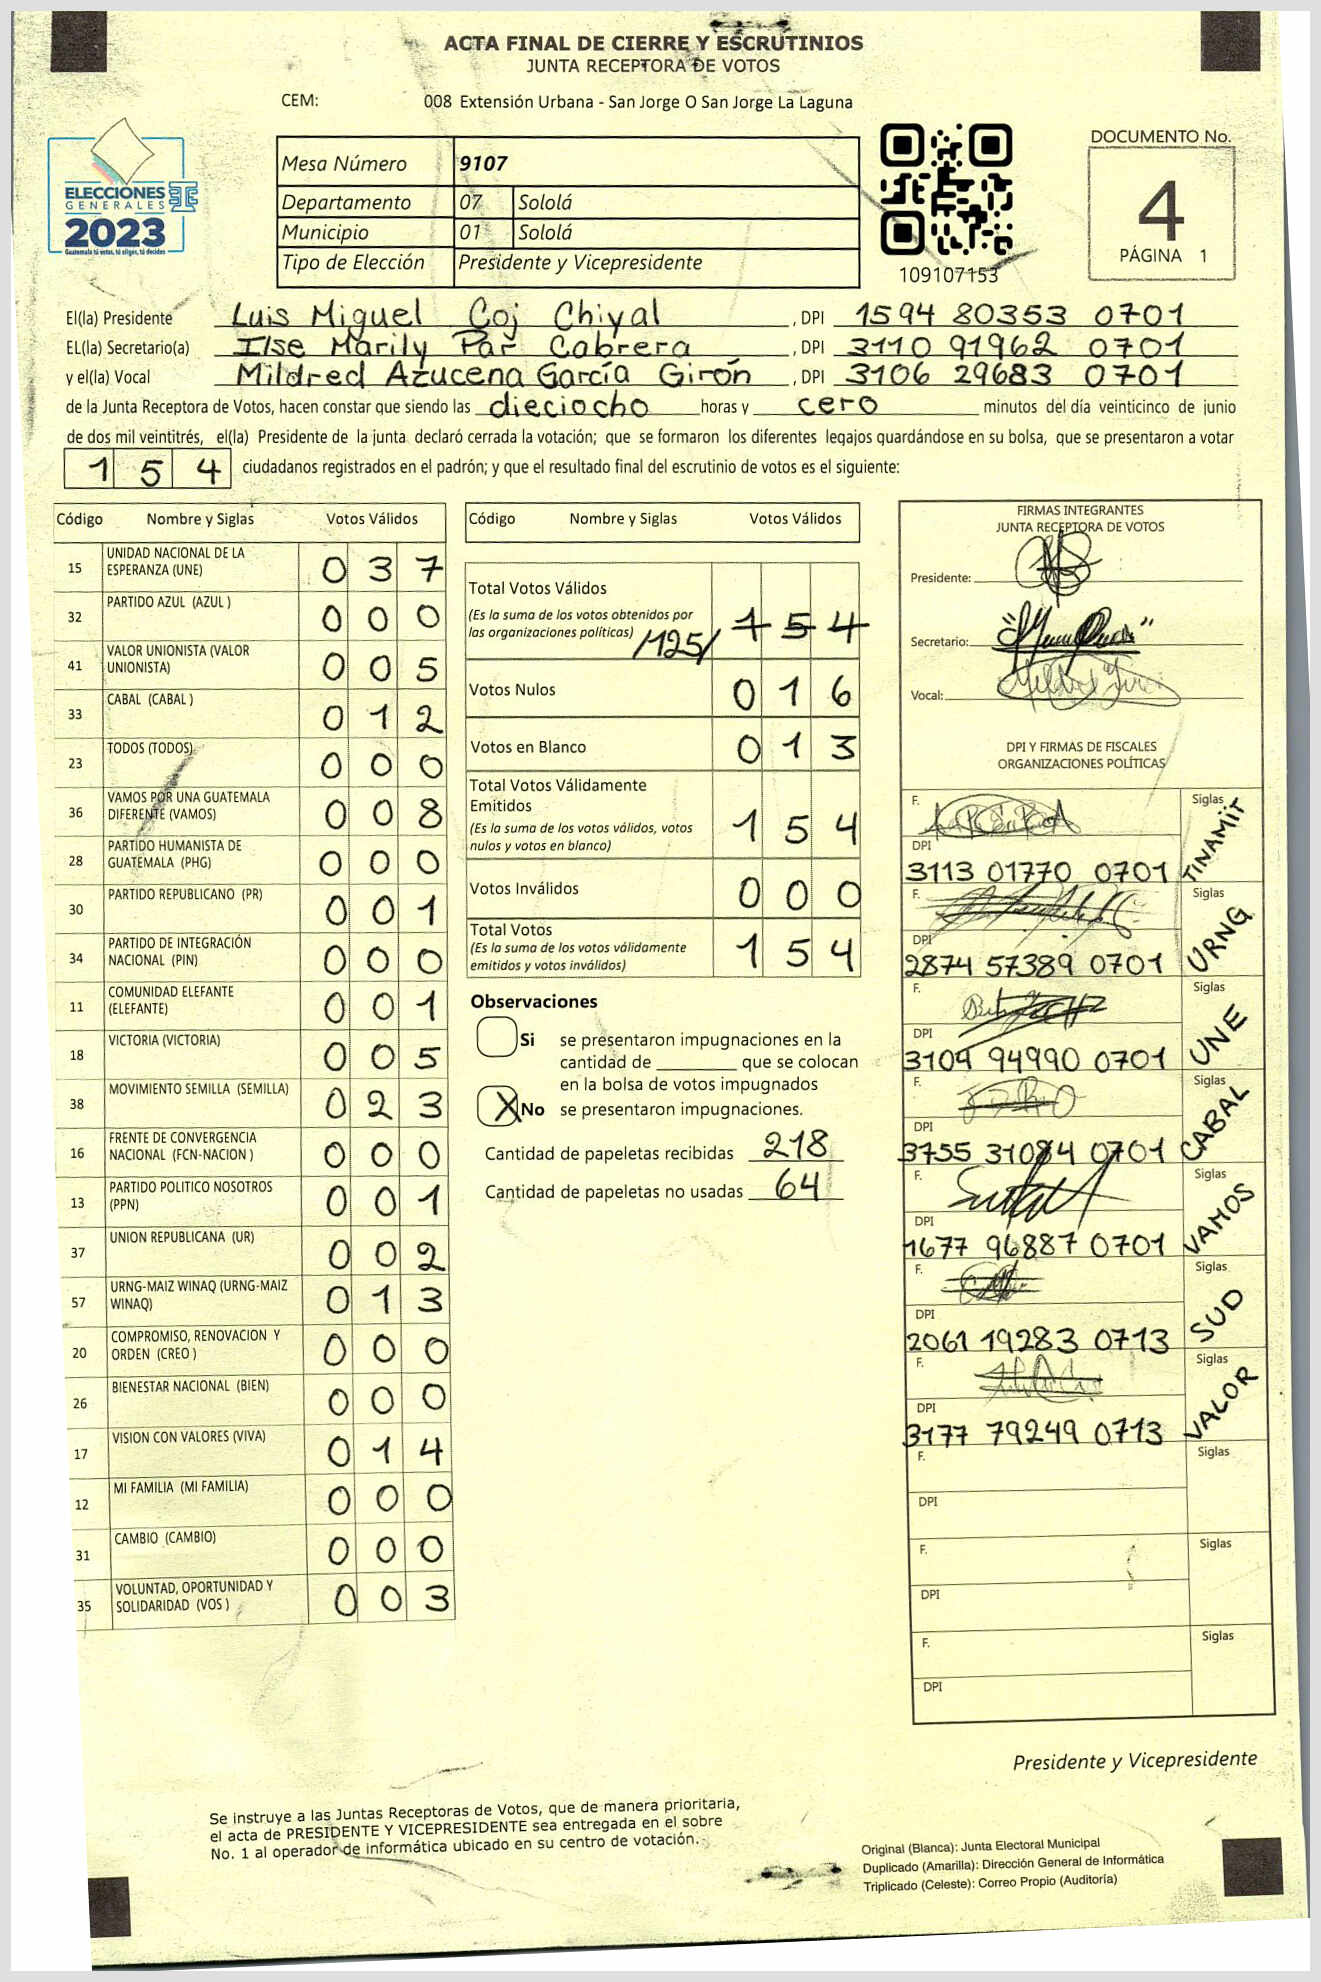 ACTA FINAL DE CIERRE Y ESCRUTINIOS
JUNTA RECEPTORA DE VOTOS
CEM: 008 Extensión Urbana - San Jorge O San Jorge La Laguna
ELECCIONES
GENERALES
2023
Guatemala tú votas, tú eliges, tú decides
Mesa Número 9107
Departamento 07 Sololá
Municipio 01 Sololá
Tipo de Elección Presidente y Vicepresidente
109107153
DOCUMENTO No.
4
PÁGINA 1
El(la) Presidente Luis Miguel Coj Chiyal , DPI 1594 80353 0701
EL(la) Secretario(a) Ilse Marily Par Cabrera , DPI 3110 91962 0701
y el(la) Vocal Mildred Azucena García Girón , DPI 3106 29683 0701
de la Junta Receptora de Votos, hacen constar que siendo las dieciocho horas y cero minutos del día veinticinco de junio
de dos mil veintitrés, el(la) Presidente de la junta declaró cerrada la votación; que se formaron los diferentes legajos guardándose en su bolsa, que se presentaron a votar
154 ciudadanos registrados en el padrón; y que el resultado final del escrutinio de votos es el siguiente:
Código Nombre y Siglas Votos Válidos
15 UNIDAD NACIONAL DE LA ESPERANZA (UNE) 0 3 7
32 PARTIDO AZUL (AZUL ) 0 0 0
41 VALOR UNIONISTA (VALOR UNIONISTA) 0 0 5
33 CABAL (CABAL ) 0 1 2
23 TODOS (TODOS) 0 0 0
36 VAMOS POR UNA GUATEMALA DIFERENTE (VAMOS) 0 0 8
28 PARTIDO HUMANISTA DE GUATEMALA (PHG) 0 0 0
30 PARTIDO REPUBLICANO (PR) 0 0 1
34 PARTIDO DE INTEGRACIÓN NACIONAL (PIN) 0 0 0
11 COMUNIDAD ELEFANTE (ELEFANTE) 0 0 1
18 VICTORIA (VICTORIA) 0 0 5
38 MOVIMIENTO SEMILLA (SEMILLA) 0 2 3
16 FRENTE DE CONVERGENCIA NACIONAL (FCN-NACION ) 0 0 0
13 PARTIDO POLITICO NOSOTROS (PPN) 0 0 1
37 UNION REPUBLICANA (UR) 0 0 2
57 URNG-MAIZ WINAQ (URNG-MAIZ WINAQ) 0 1 3
20 COMPROMISO, RENOVACION Y ORDEN (CREO ) 0 0 0
26 BIENESTAR NACIONAL (BIEN) 0 0 0
17 VISION CON VALORES (VIVA) 0 1 4
12 MI FAMILIA (MI FAMILIA) 0 0 0
31 CAMBIO (CAMBIO) 0 0 0
35 VOLUNTAD, OPORTUNIDAD Y SOLIDARIDAD (VOS ) 0 0 3
Código Nombre y Siglas Votos Válidos
Total Votos Válidos
(Es la suma de los votos obtenidos por
las organizaciones políticas) /125/ 1 5 4
Votos Nulos 0 1 6
Votos en Blanco 0 1 3
Total Votos Válidamente
Emitidos
(Es la suma de los votos válidos, votos
nulos y votos en blanco) 1 5 4
Votos Inválidos 0 0 0
Total Votos
(Es la suma de los votos válidamente
emitidos y votos inválidos) 1 5 4
Observaciones
Si se presentaron impugnaciones en la
cantidad de ________ que se colocan
en la bolsa de votos impugnados
X No se presentaron impugnaciones.
Cantidad de papeletas recibidas 218
Cantidad de papeletas no usadas 64
FIRMAS INTEGRANTES
JUNTA RECEPTORA DE VOTOS
Presidente:
Secretario:
Vocal:
DPI Y FIRMAS DE FISCALES
ORGANIZACIONES POLÍTICAS
F. Siglas TINAMIT
DPI
3113 01770 0701
F. Siglas URNG
DPI
2874 57389 0701
F. Siglas UNE
DPI
3109 94990 0701
F. Siglas CABAL
DPI
3755 31084 0701
F. Siglas VAMOS
DPI
1677 96887 0701
F. Siglas SUD
DPI
2061 19283 0713
F. Siglas VALOR
DPI
3177 79249 0713
F. Siglas
DPI
F. Siglas
DPI
F. Siglas
DPI
Presidente y Vicepresidente
Se instruye a las Juntas Receptoras de Votos, que de manera prioritaria,
el acta de PRESIDENTE Y VICEPRESIDENTE sea entregada en el sobre
No. 1 al operador de informática ubicado en su centro de votación.
Original (Blanca): Junta Electoral Municipal
Duplicado (Amarilla): Dirección General de Informática
Triplicado (Celeste): Correo Propio (Auditoría)